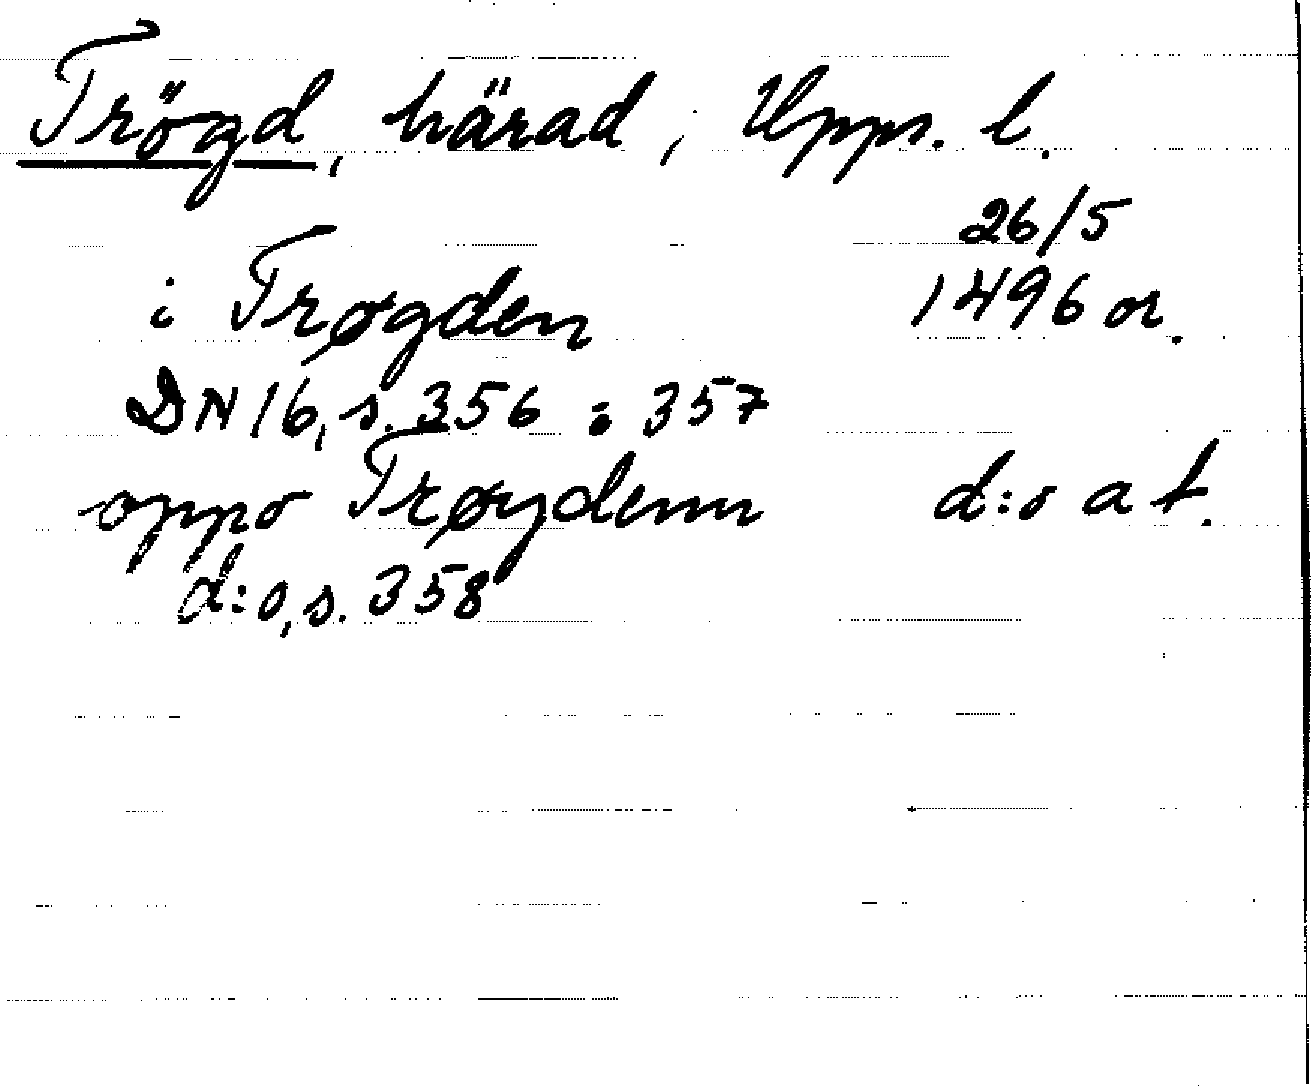 Trögd, härad, Upps. l.
26/5
i Trøgden 1496 or.
DN 16, s. 356 o 357
oppo Trøydenn d:o a f.
d:o, s. 358